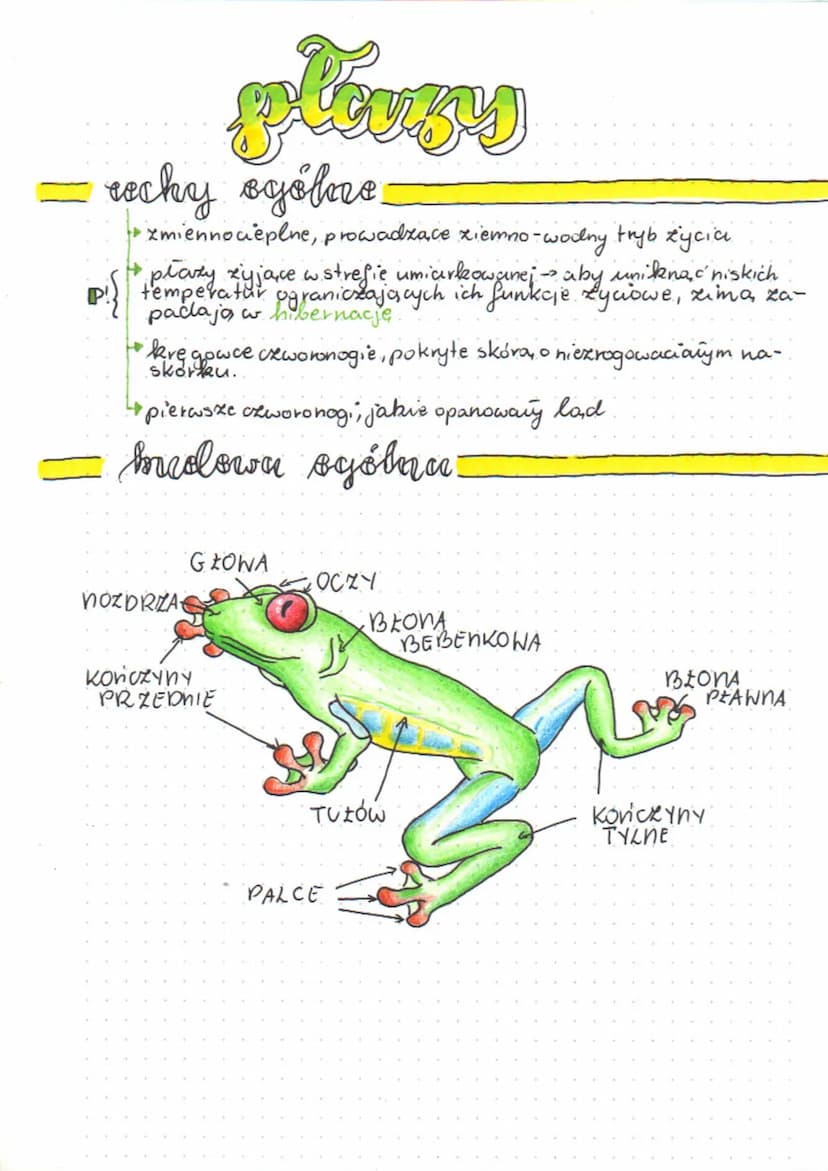 płazy
cechy ogólne
zmiennocieplne, prowadzące ziemno-wodny tryb życia
płazy żyjące w strefie umiarkowanej → aby uniknąć niskich
P!
temperatur ograniczających ich funkcje życiowe, zimą za-
padają w hibernację
kręgowce czworonogie, pokryte skórą o niezrogowaciałym na-
skórku.
pierwsze czworonogi, jakie opanowały ląd
budowa ogólna
GŁOWA
OCZY
NOZDRZA
BŁONA
BĘBENKOWA
KOŃCZYNY
PRZEDNIE
BŁONA
PŁAWNA
TUŁÓW
KOŃCZYNY
TYLNE
PALCE